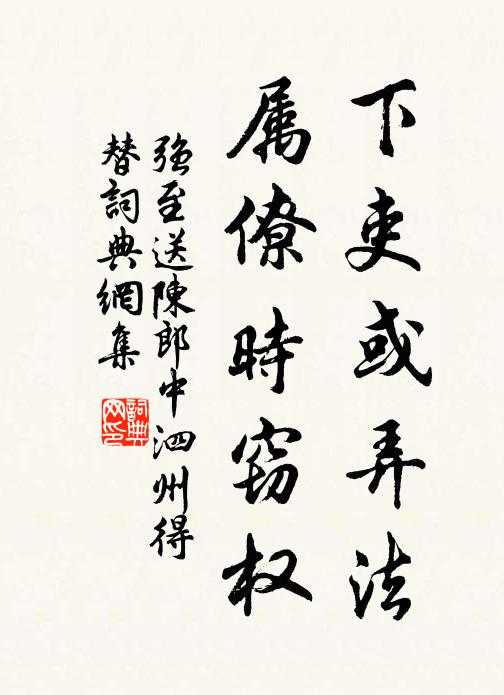 下吏或弄法
属僚時窃权
強至送陳郎中泗州得
替詞典網集
詞典網印